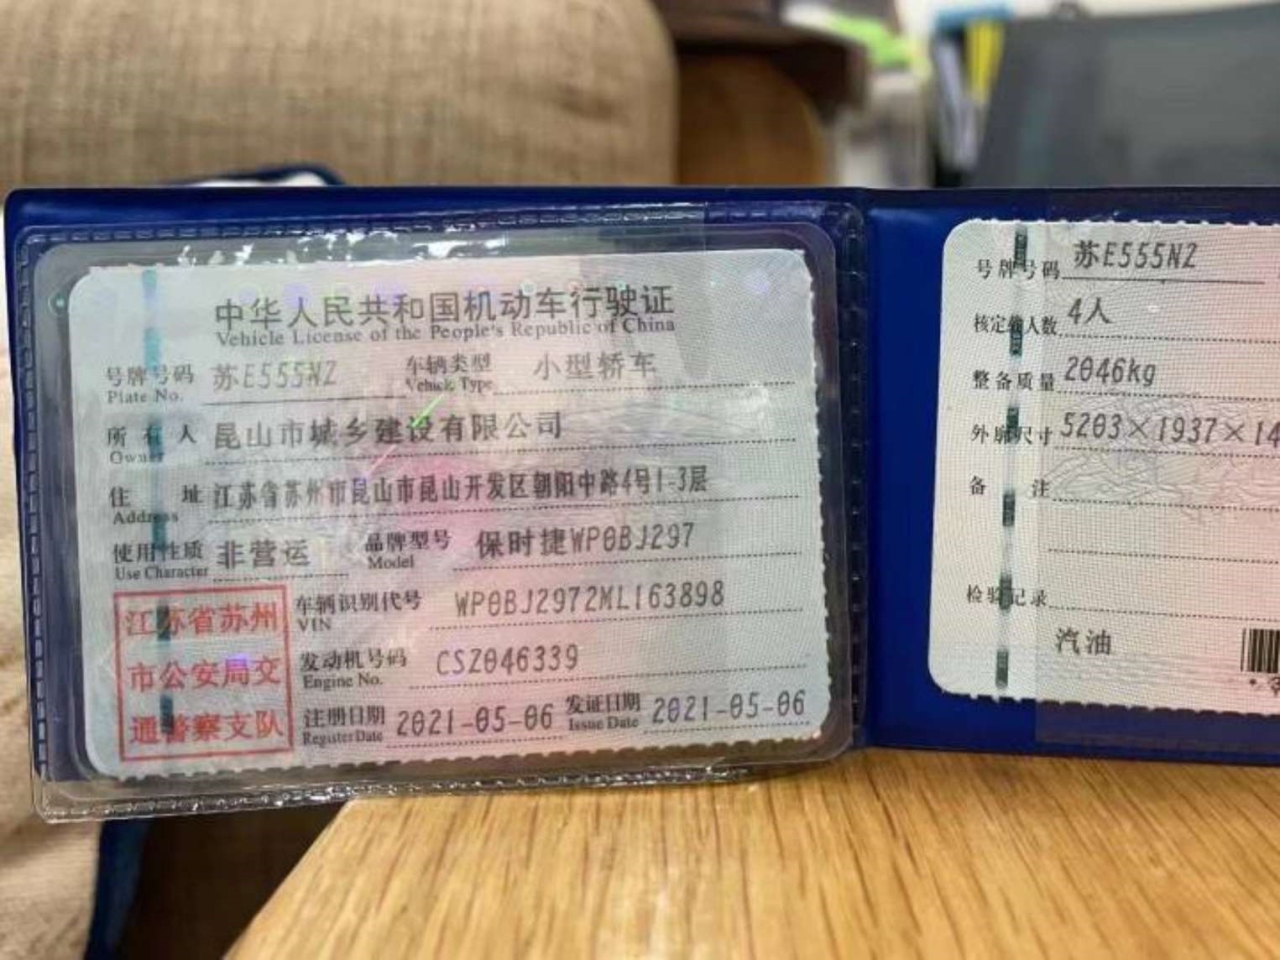 中华人民共和国机动车行驶证
Vehicle License of the People's Republic of China
号牌号码 苏E555NZ 车辆类型 小型轿车
Plate No. Vehicle Type
所有人 昆山市城乡建设有限公司
Owner
住址 江苏省苏州市昆山市昆山开发区朝阳中路4号1-3层
Address
使用性质 非营运 品牌型号 保时捷WP0BJ297
Use Character Model
车辆识别代号 WP0BJ2972ML163898
VIN
发动机号码 CSZ046339
Engine No.
注册日期 2021-05-06 发证日期 2021-05-06
Register Date Issue Date
江苏省苏州
市公安局交
通警察支队
号牌号码 苏E555NZ
核定载人数 4人
整备质量 2046kg
外廓尺寸 5203×1937×14
备注
检验记录
汽油